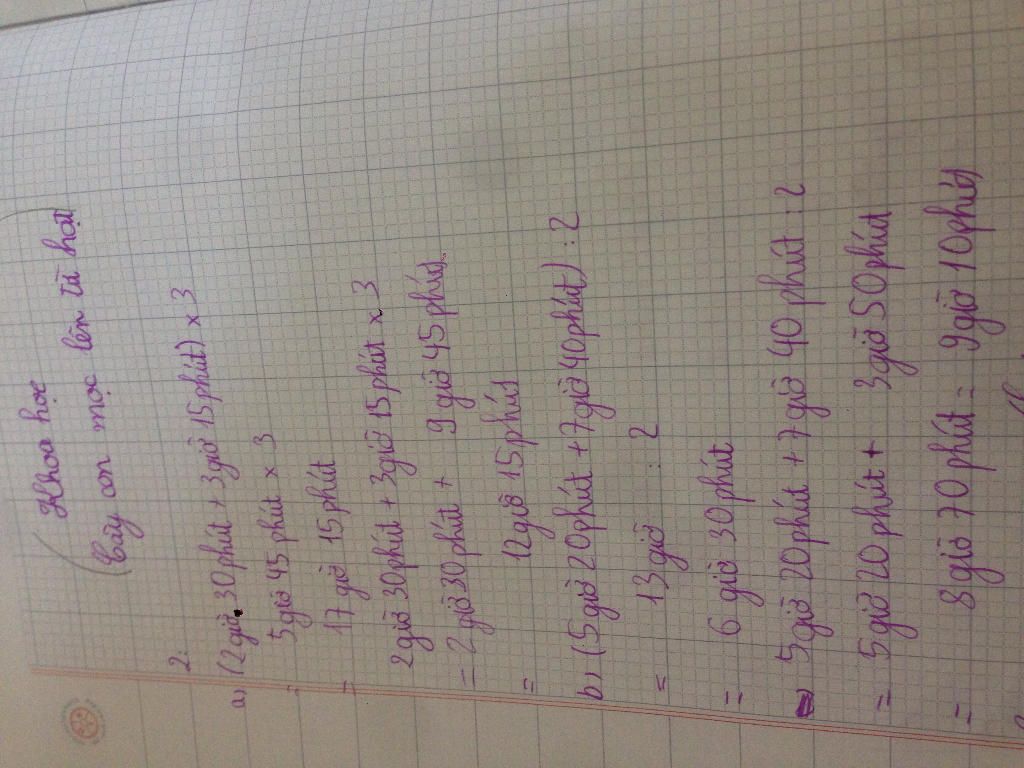 Khoa học
(Cây con mọc lên từ hạt)
2:
a) (2giờ 30phút + 3giờ 15phút) x 3
= 5giờ 45 phút x 3
= 17 giờ 15phút
2giờ 30phút + 3giờ 15phút x 3
= 2 giờ 30phút + 9 giờ 45 phút
= 12giờ 15phút
b) (5giờ 20phút + 7giờ 40phút) : 2
= 13giờ : 2
= 6 giờ 30phút
5giờ 20phút + 7giờ 40 phút : 2
= 5giờ 20 phút + 3giờ 50phút
= 8giờ 70phút = 9giờ 10phút